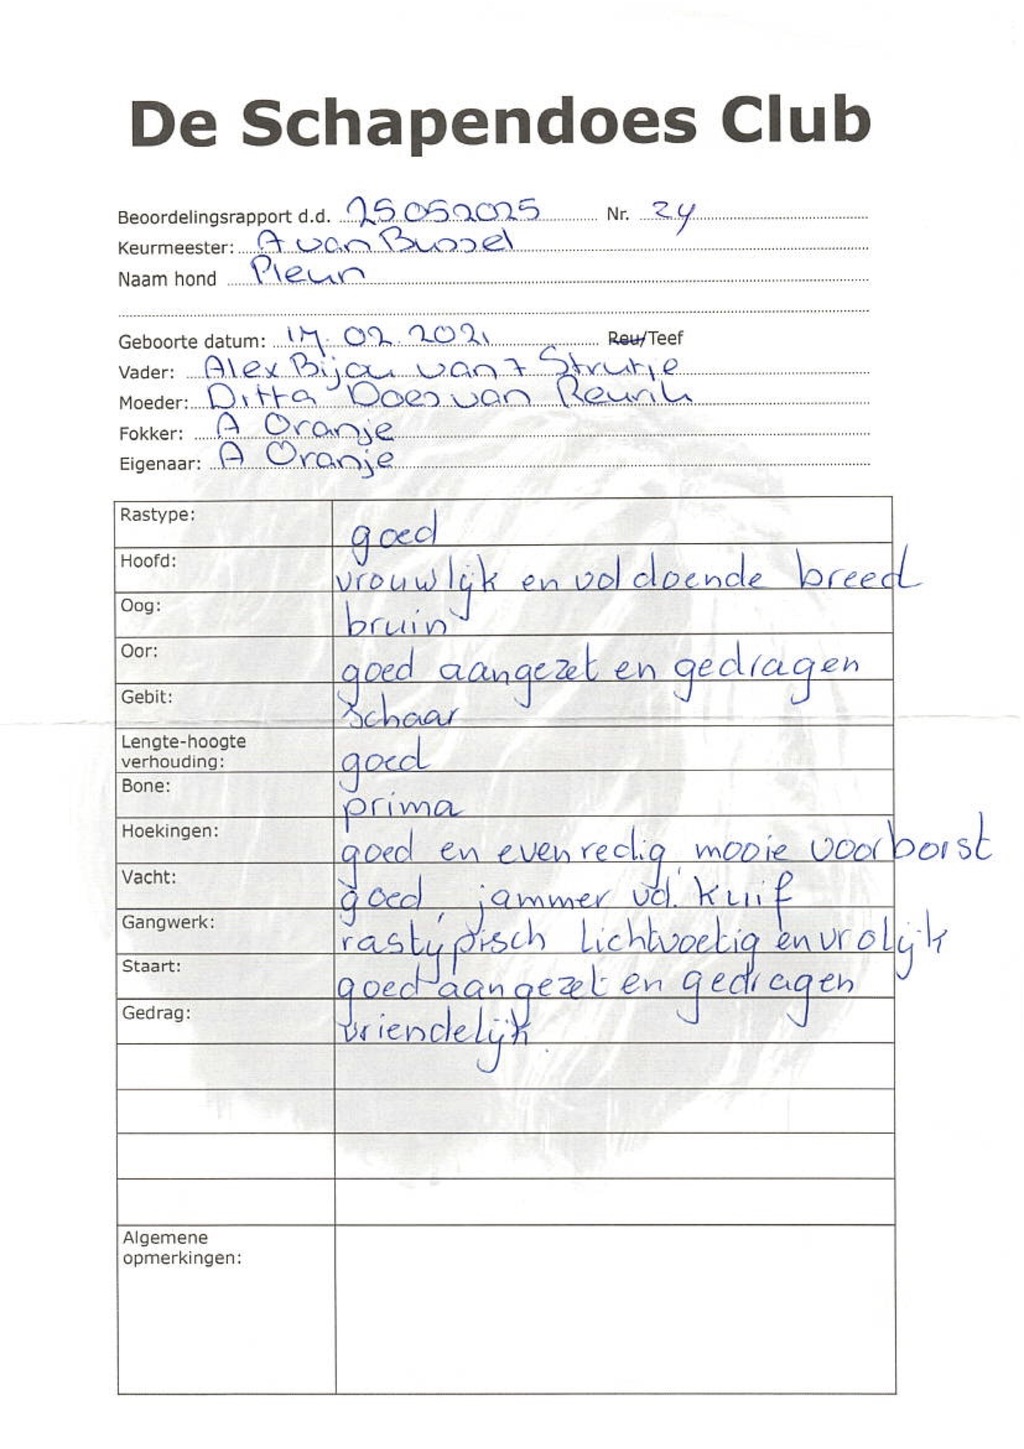 De Schapendoes Club
Beoordelingsrapport d.d. 25052025 Nr. 24
Keurmeester: A van Bussel
Naam hond Pleun
Geboorte datum: 17.02.2021 Reu/Teef
Vader: Alex Bijou van 't Strutje
Moeder: Ditta Does van
Fokker: A Oranje
Eigenaar: A Oranje
Rastype: goed
Hoofd: vrouwlijk en voldoende breed
Oog: bruin
Oor: goed aangezet en gedragen
Gebit: schaar
Lengte-hoogte
verhouding: goed
Bone: prima
Hoekingen: goed en evenredig, mooie voorborst
Vacht: goed, jammer vd. kuif
Gangwerk: rastypisch lichtvoetig en vrolijk
Staart: goed aangezet en gedragen
Gedrag: vriendelijk.
Algemene
opmerkingen: